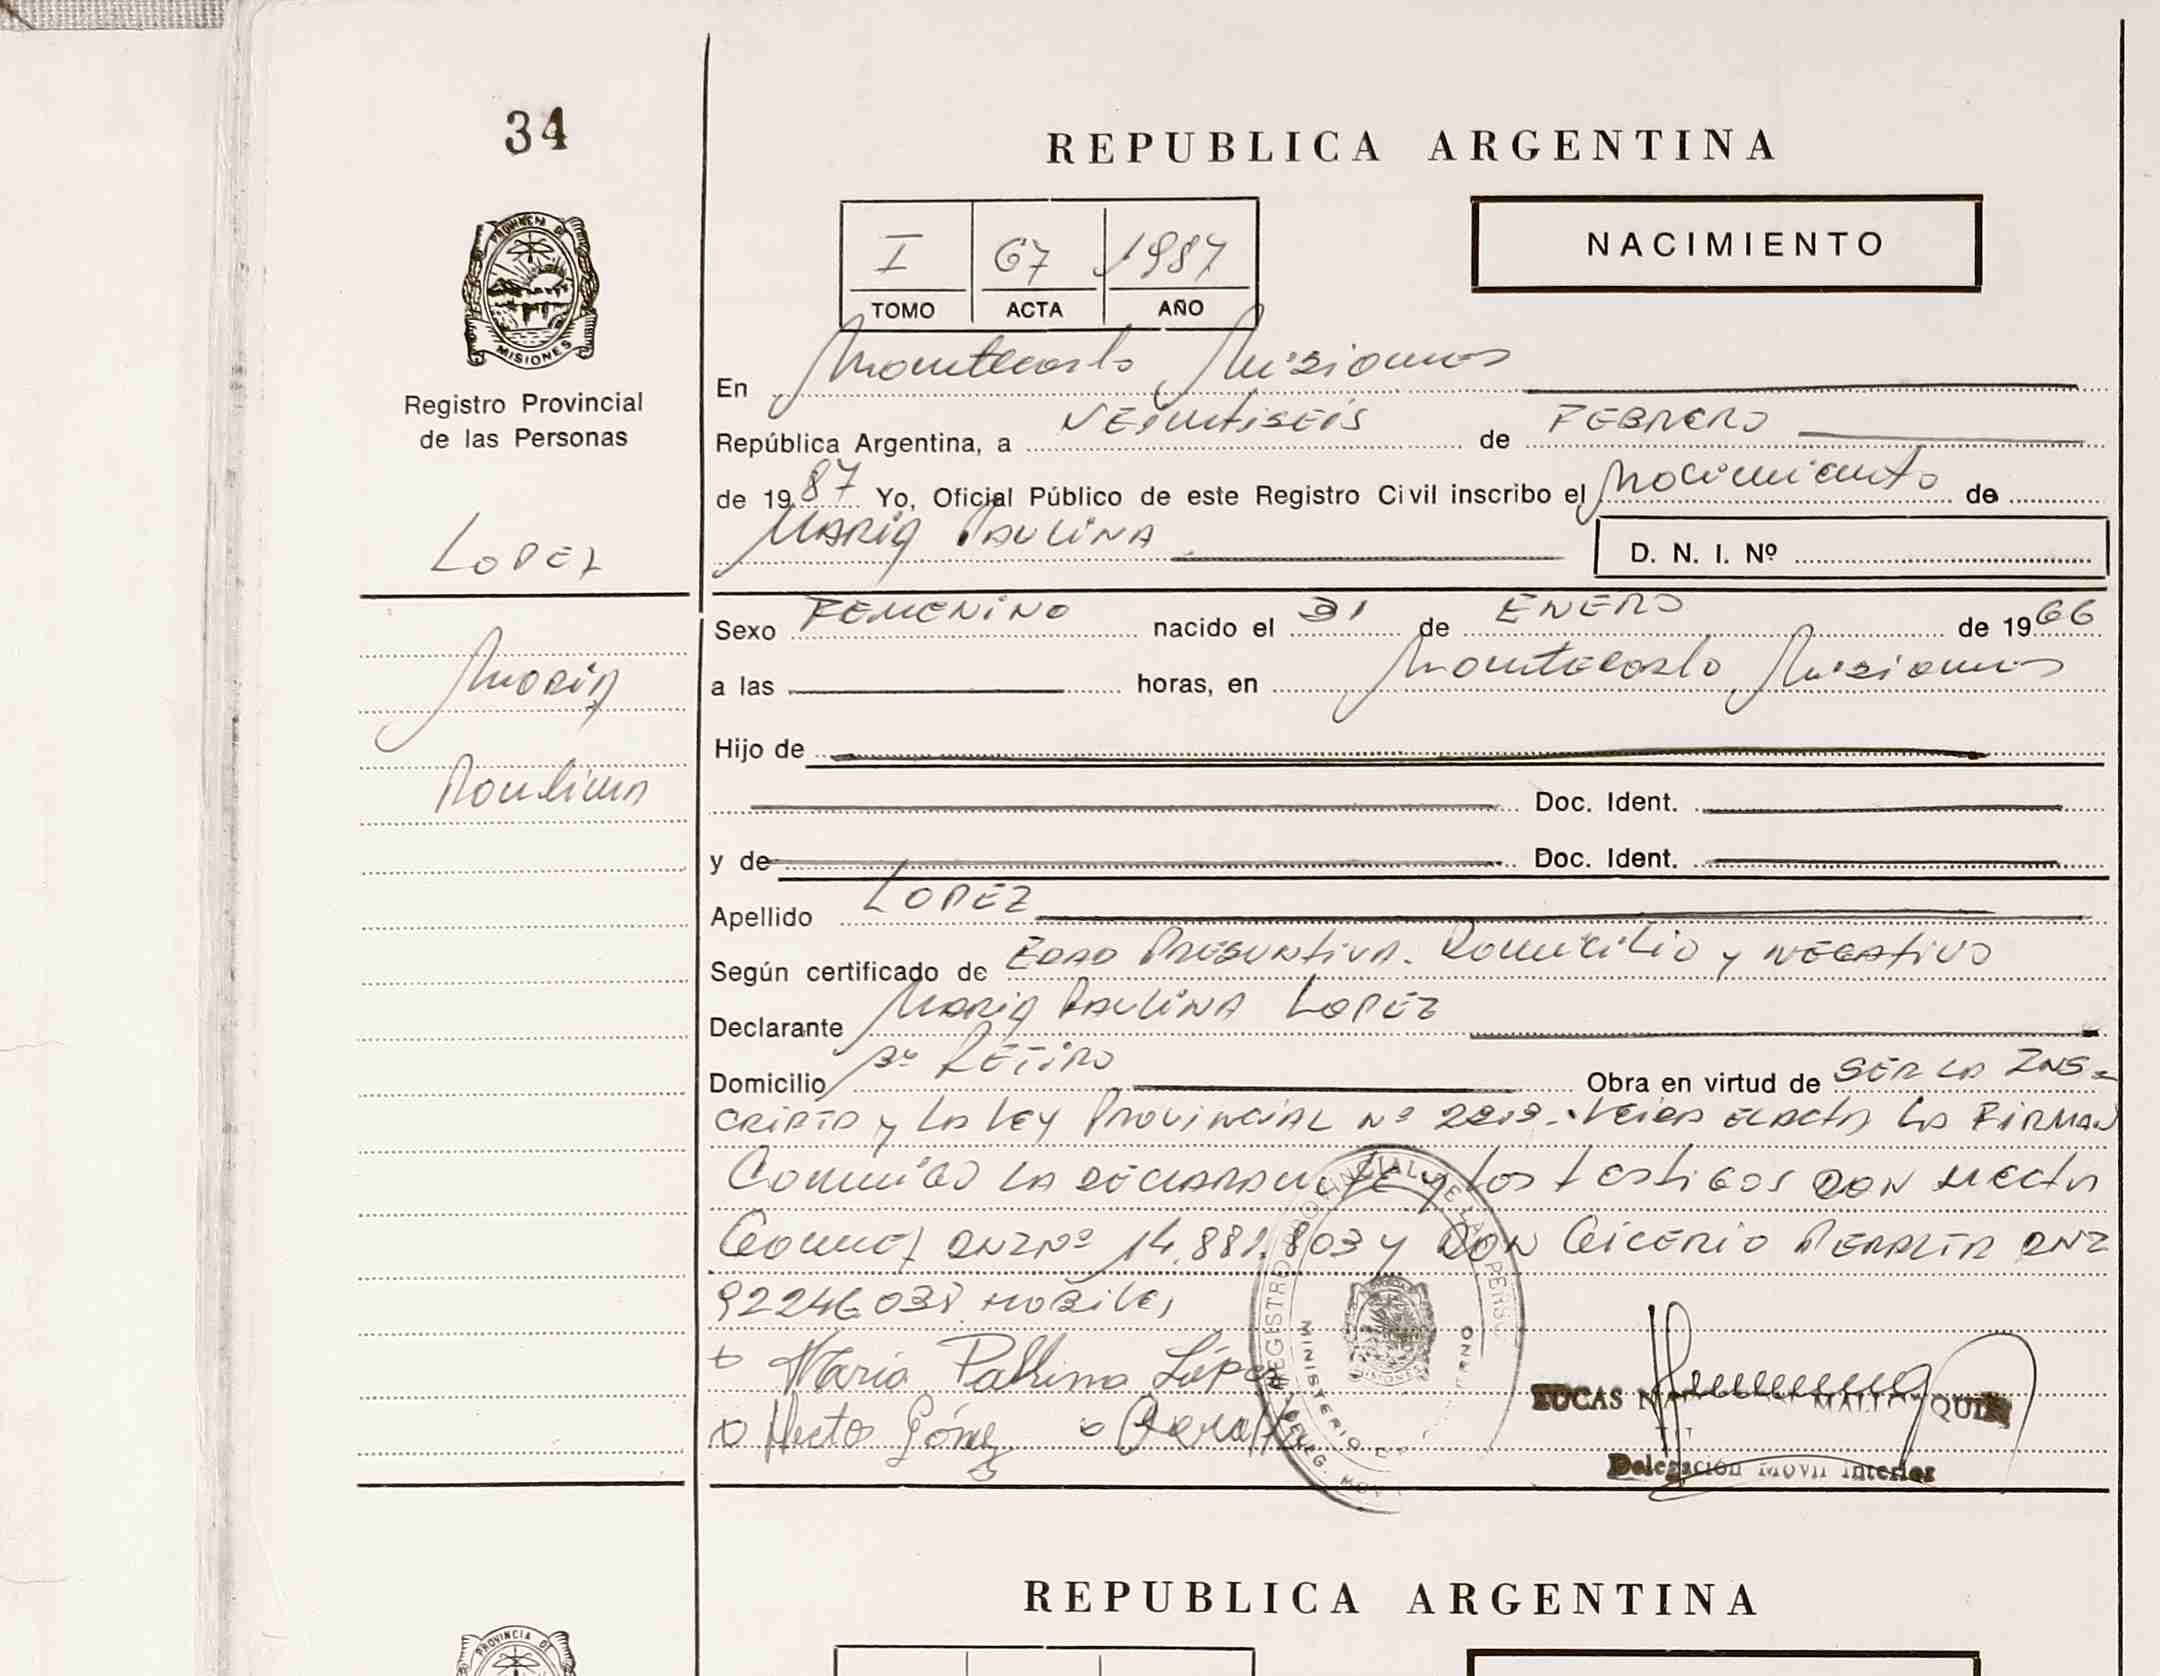 34
REPUBLICA ARGENTINA
PROVINCIA DE
MISIONES
Registro Provincial
de las Personas
I 67 1987
TOMO ACTA AÑO
NACIMIENTO
En Montecarlo Misiones
República Argentina, a VEintiSEiS de FEBRERO
de 1987 Yo, Oficial Público de este Registro Civil inscribo el Nacimiento de
MARIA PAULINA
D. N. I. Nº
LOPEZ
Maria
Paulina
Sexo FEMENINO nacido el 31 de ENERO de 1966
a las horas, en Montecarlo Misiones
Hijo de
Doc. Ident.
y de Doc. Ident.
Apellido LOPEZ
Según certificado de EDAD PRESUNTIVA. Domicilio y NEGATIVO
Declarante MARIA PAULINA LOPEZ
Domicilio RETIRO Obra en virtud de SER LA INS-
CRIPTA y LA LEY PROVINCIAL Nº LEIDA EL ACTA LA FIRMAN
Conmigo LA DECLARANTE y LOS testigos DON HECTOR
Gomez DNI Nº 14.881.803 y DON CICERIO PERALTA DNI
92246038 HABILES
Maria Paulina López
Hector Gómez Peralta
REGISTRO PROVINCIAL DE LAS PERSONAS
MINISTERIO
DELEG. MOV
LUCAS QUIN
Delegación Movil Interior
REPUBLICA ARGENTINA
PROVINCIA DE